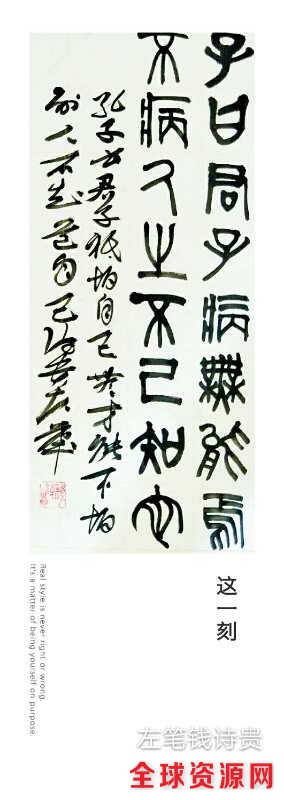 子曰君子病無能焉
不病人之不己知也
孔子君子怕自己才能不怕
别人不知道自己
这一刻
Real style is never right or wrong.
It's a matter of being yourself on purpose.
左笔钱诗贵
全球资源网